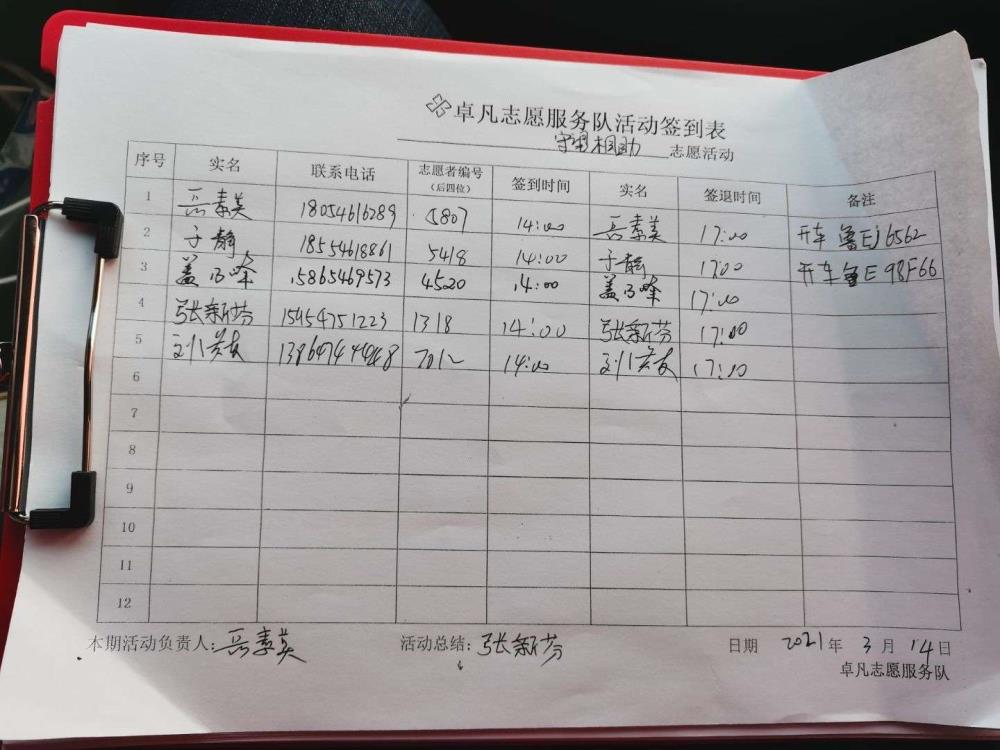 卓凡志愿服务队活动签到表
守望相助 志愿活动
序号 实名 联系电话 志愿者编号(后四位) 签到时间 实名 签退时间 备注
1 岳素英 18054616289 5807 14:00 岳素英 17:00 开车 鲁EJ6562
2 于静 18554618861 5418 14:00 于静 17:00 开车鲁E 98F66
3 盖 峰 15865469573 4520 14:00 盖 峰 17:00
4 张新芬 15954751223 1318 14:00 张新芬 17:00
5 刘 友 13864744448 7012 14:00 刘 友 17:00
6
7
8
9
10
11
12
本期活动负责人: 岳素英 活动总结: 张新芬 日期 2021年 3 月 14日
卓凡志愿服务队